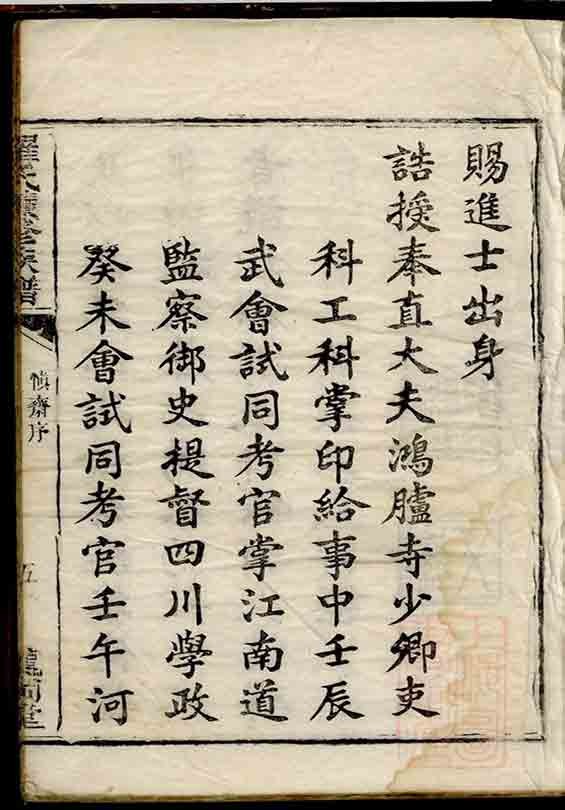 賜進士出身
誥授奉直大夫鴻臚寺少卿吏
科工科掌印給事中壬辰
武會試同考官掌江南道
監察御史提督四川學政
癸未會試同考官壬午河
氏族譜
慎齋序
五
堂